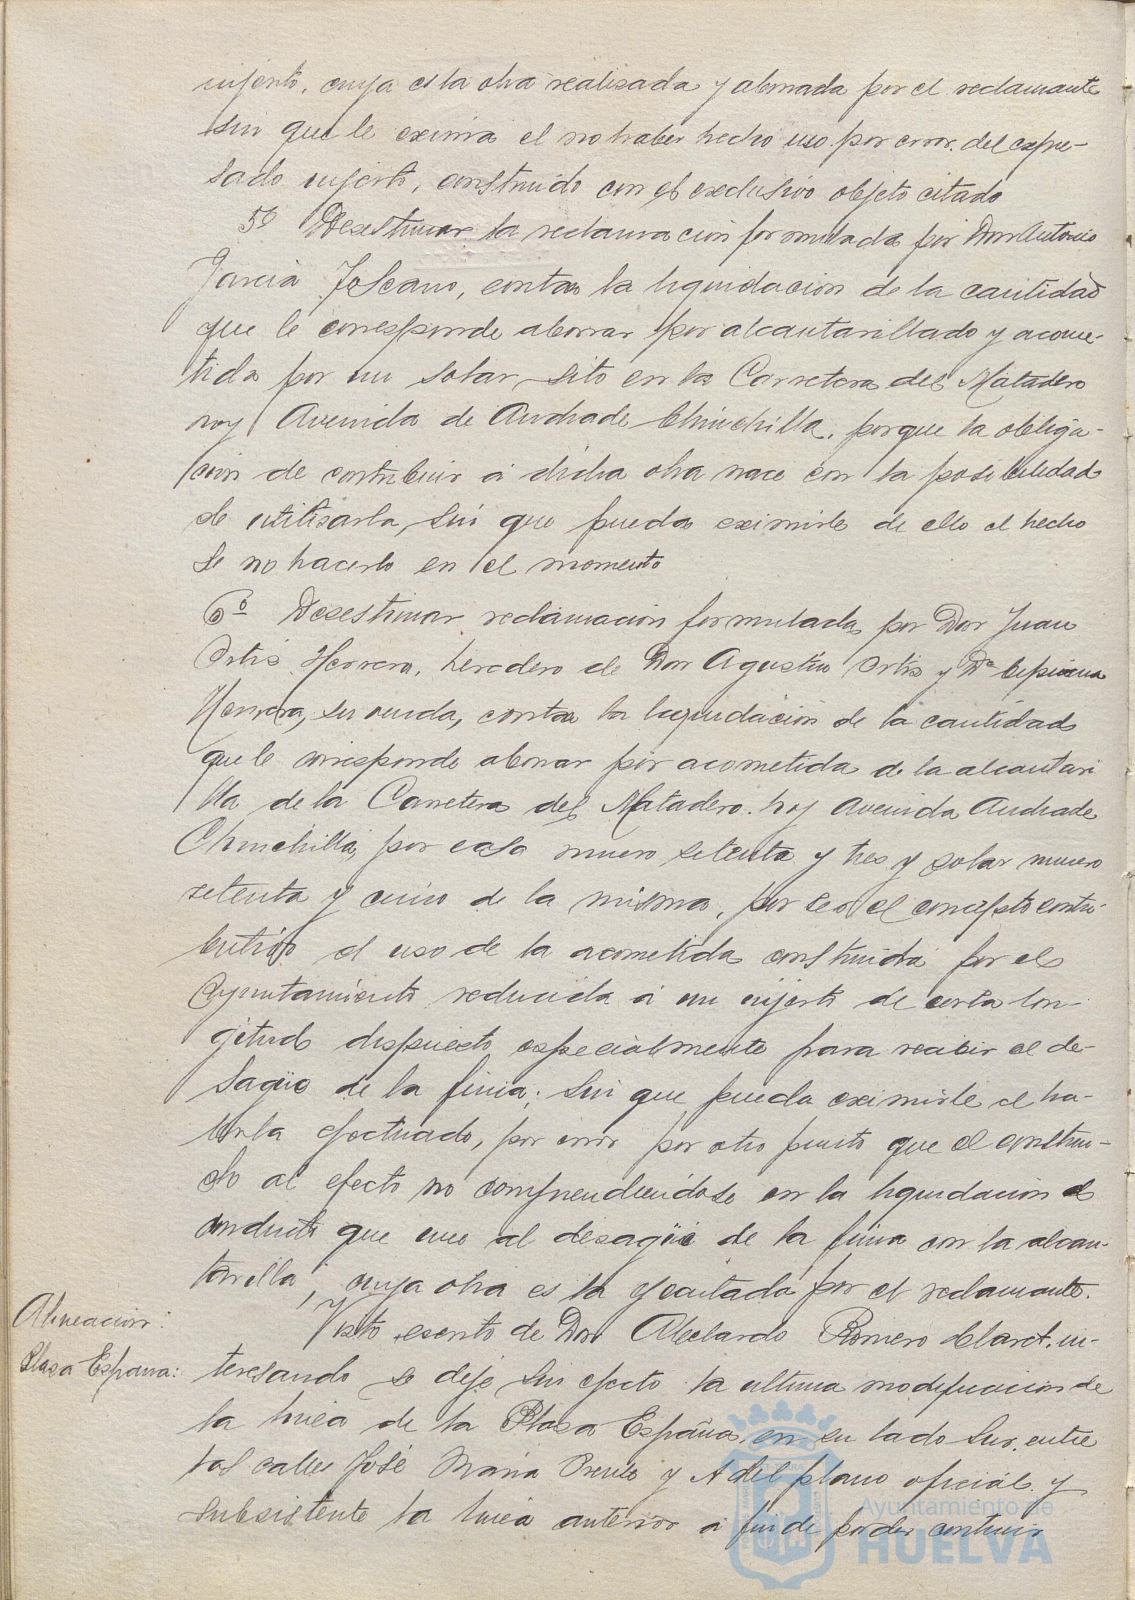 injerto, cuya es la obra realisada y abonada por el reclamante
sin que le exima el no haber hecho uso por error del expre-
sado injerto, construido con el exclusivo objeto citado
5º Desestimar la reclamacion formulada por Don Antonio
Garcia Toscano, contra la liquidacion de la cantidad
que le corresponde abonar por alcantarillado y acome-
tida por un solar sito en la Carretera del Matadero
hoy Avenida de Andrade Chinchilla, porque la obliga-
ción de contribuir á dicha obra nace con la posibilidad
de utilisarla, sin que pueda eximirle de ello el hecho
de no hacerlo en el momento
6º Desestimar reclamacion formulada por Don Juan
Ortis Herrera, heredero de Don Agustin Ortis y Dª
Herrera, su viuda, contra la liquidacion de la cantidad
que le corresponde abonar por acometida de la alcantari
lla de la Carretera del Matadero hoy Avenida Andrade
Chinchilla, por casa muero setenta y tres y solar muero
setenta y cinco de la misma, por ser el concepto contri-
butivo el uso de la acometida construida por el
Ayuntamiento reducida á un injerto de corta lon-
gitud dispuesto especialmente para recibir el de-
sagüe de la finca; sin que pueda eximirle el ha-
berla efectuado, por error por otro punto que el construi-
do al efecto no comprendiendose en la liquidacion el
conducto que une al desagüe de la finca con la alcan-
tarilla, cuya obra es la ejecutada por el reclamante.
Alineación:
Plasa España:
Visto escrito de Don Abelardo Romero Claret, in-
teresando se deje sin efecto la ultima modificacion de
la linea de la Plasa España, en su lado Sur, entre
las calles José Maria y A del plano oficial y
subsistente la linea anterior á fin de poder continuar
Ayuntamiento de
HUELVA